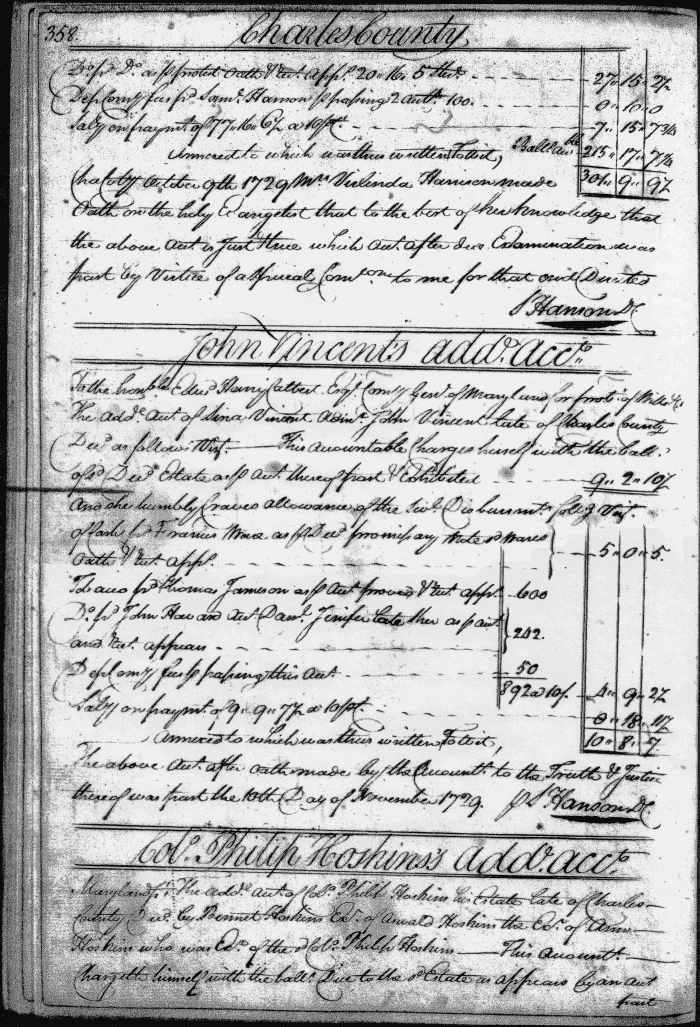 358
Charles County
Do pd Do as p proted Oath & Rect App. 20.. 16.. 5 27.. 15.. 2½
Dep Comry fees pd Saml. Hanson p passing 2 Accts. 100. 0.. 10.. 0
Salry on paymt of 77.. 16.. 6½ a 10 pCt. 7.. 15.. 7¾
Annexed to which was thus written To wit, Ballce 215.. 17.. 7¼
301.. 9.. 9½
Cha Coty October 9th 1729 Mrs Violinda Harrison made
Oath on the holy Evangelist that to the best of her knowledge that
the above Acct is Just & true which Acct. after due Examination was
past by Virtue of a Special Comon to me for that end Directed
S Hanson DC
John Vincent's add.l acct.
To the honoble Edwd Henry Calvert Esqr Comry Genl of Maryland for probt of Wills &c
The Addl Acct of Admx John Vincent late of Charles County
Decd as follows Vizt. — This Accountable Charges herself with the ball.
of sd Decd Estate as p Acct. thereof past & Exhibited 9.. 2.. 10½
And she humbly Craves allowance of the Sevl. Disbursmts. follg Vizt.
Of Cash pd Francis Ware as p Decd promisary Note sd Wares
Oath & Rect App. 5.. 0.. 5.
Tobacco pd Thomas Jameson as p Acct proved & Rect app. 600
Do pd John Howard Danl. Jenifer late Sher as p acct
and Rect. appears 242.
Dep Comry fees p passing this Acct 50
892 a 10/. 4.. 9.. 2½
Salry on paymt of 9.. 9.. 7½ a 10 pCt. 0.. 18.. 11½
10.. 8.. 7
Annexed to which was thus written To wit,
The above Acct. after oath made by the Accountt to the Truth & Justice
thereof was past the 10th Day of November 1729. p S Hanson DC
Col.o Philip Hoskins's add.l acct.
Maryland ss. The addl. acct. of Colo. Philip Hoskins his Estate late of Charles
County Decd by Bennet Hoskins Exr. of Oswald Hoskins the Exr. of Ann
Hoskins who was Exx of the sd Colo. Philip Hoskins — This Accountt.
Chargeth himself with the ball. Due to the sd Estate as appears by an Acct
past